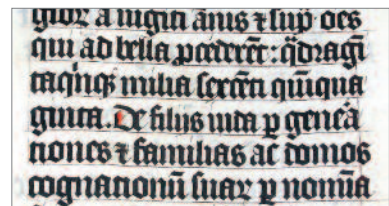 a uigiti ãnis ⁊ sup̃ oẽs
qui ad bella ꝓcederẽt: q̃dragĩ
taq̃nq̃ milia sexcẽti quĩqua
ginta. De filiis iuda ꝑ genẽa
tiones ⁊ familias ac domos
cognationũ suaꝝ ꝑ nomĩa